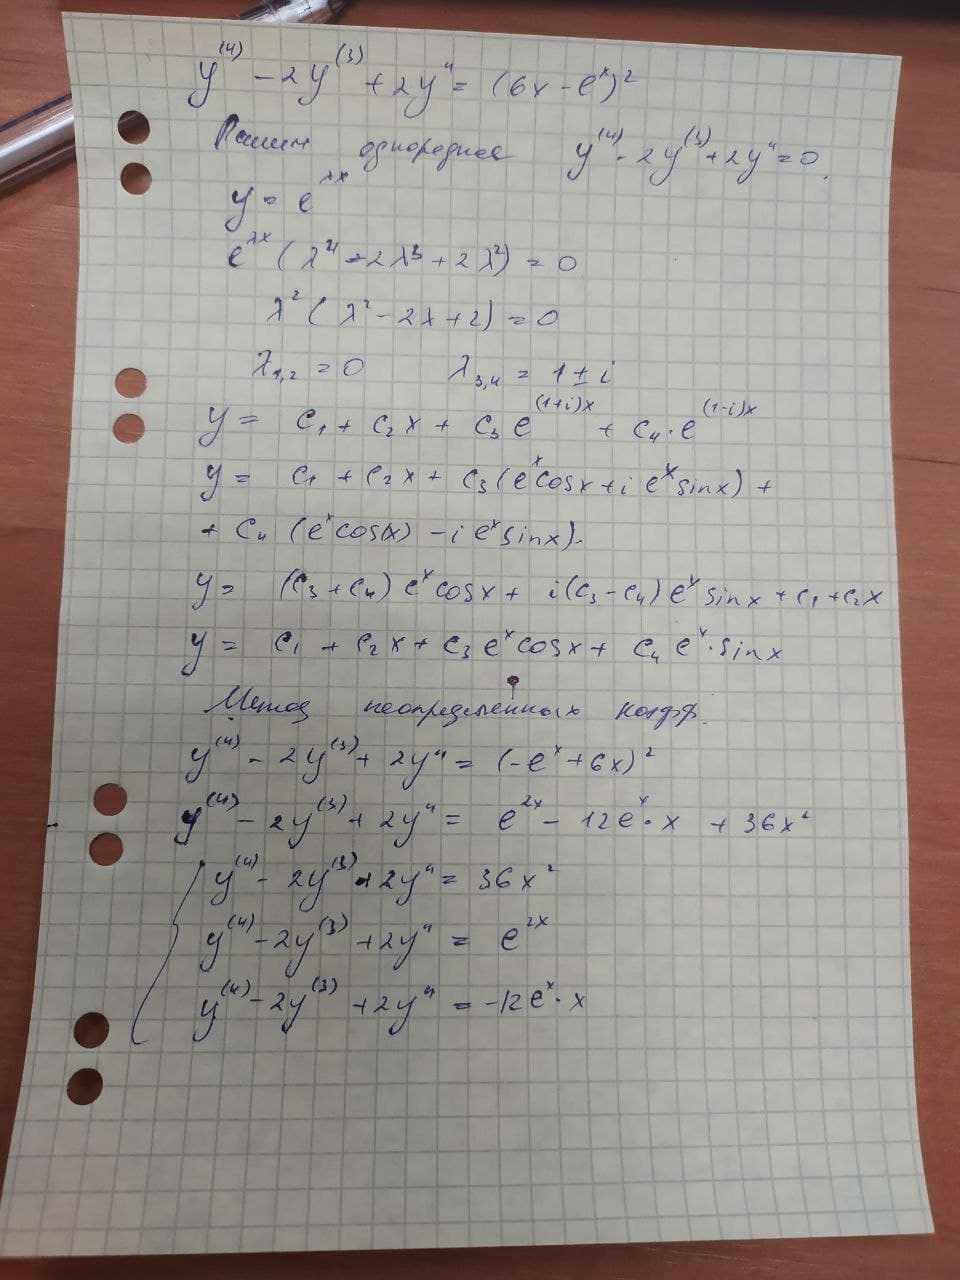 y⁽⁴⁾ - 2y⁽³⁾ + 2y'' = (6x - eˣ)²
Решим однородное y⁽⁴⁾ - 2y⁽³⁾ + 2y'' = 0.
y = e^{λx}
e^{λx} (λ⁴ - 2λ³ + 2λ²) = 0
λ² (λ² - 2λ + 2) = 0
λ₁,₂ = 0 λ₃,₄ = 1 ± i
y = C₁ + C₂x + C₃ e^{(1+i)x} + C₄ · e^{(1-i)x}
y = C₁ + C₂x + C₃ (eˣcosx + i eˣsinx) +
+ C₄ (eˣcos(x) - i eˣsinx).
y = (C₃ + C₄) eˣcosx + i(C₃ - C₄) eˣ sinx + C₁ + C₂x
y = C₁ + C₂x + C₃ eˣcosx + C₄ eˣ · sinx
Метод неопределённых коэфф.
y⁽⁴⁾ - 2y⁽³⁾ + 2y'' = (-eˣ + 6x)²
y⁽⁴⁾ - 2y⁽³⁾ + 2y'' = e^{2x} - 12eˣ · x + 36x²
y⁽⁴⁾ - 2y⁽³⁾ + 2y'' = 36x²
y⁽⁴⁾ - 2y⁽³⁾ + 2y'' = e^{2x}
y⁽⁴⁾ - 2y⁽³⁾ + 2y'' = -12eˣ · x